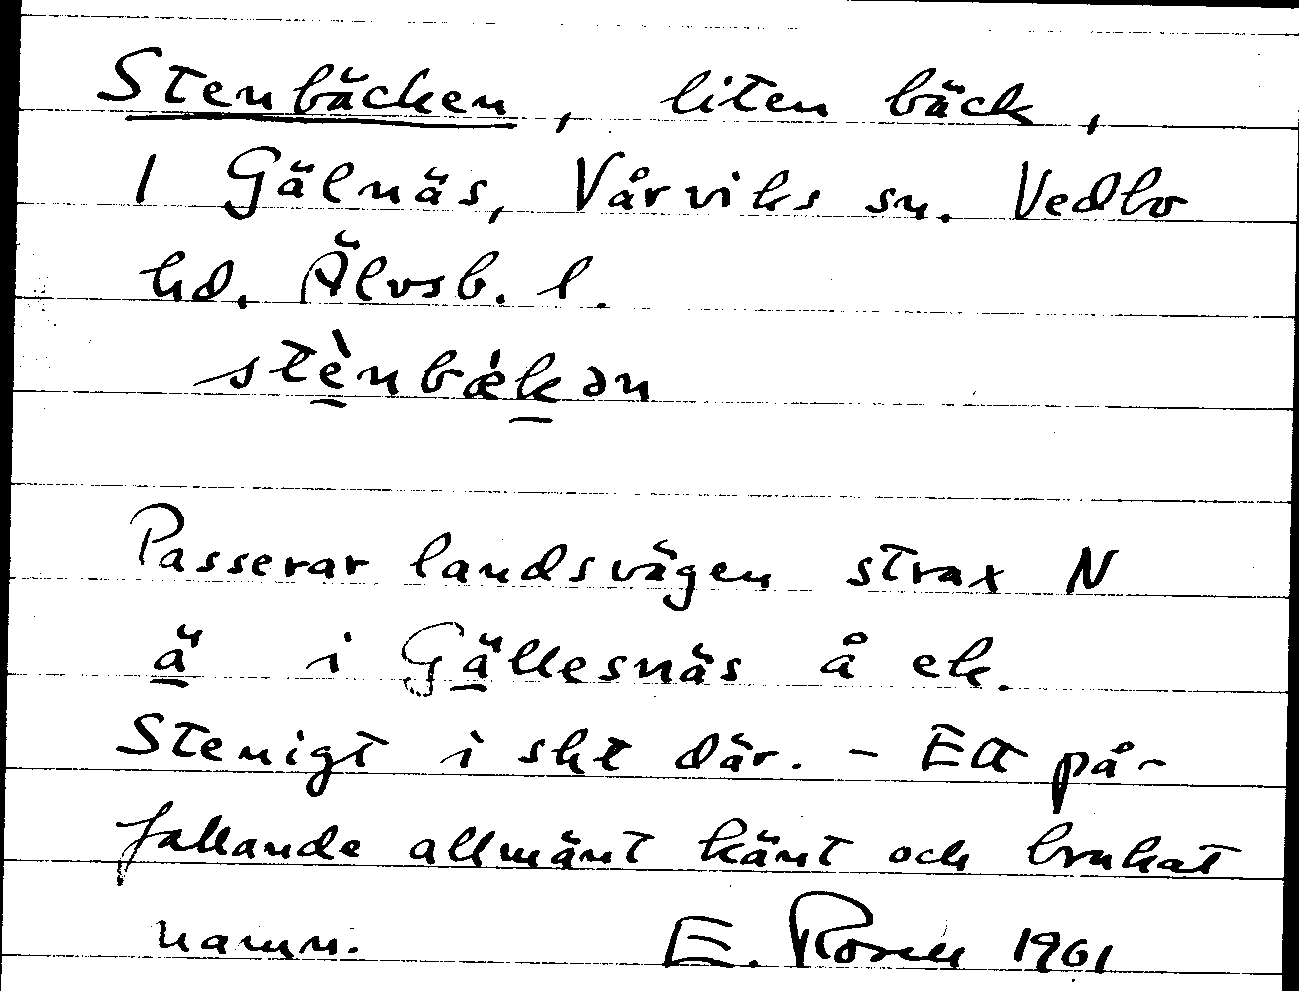 Stenbäcken, liten bäck,
I Gälnäs, Vårviks sn. Vedbo
hd. Älvsb. l.
stènbæ̀kən
Passerar landsvägen strax N
ä i Gällesnäs å ek.
Stenigt i sht där. - Ett på-
fallande allmänt känt och brukat
namn. E. Rosell 1961